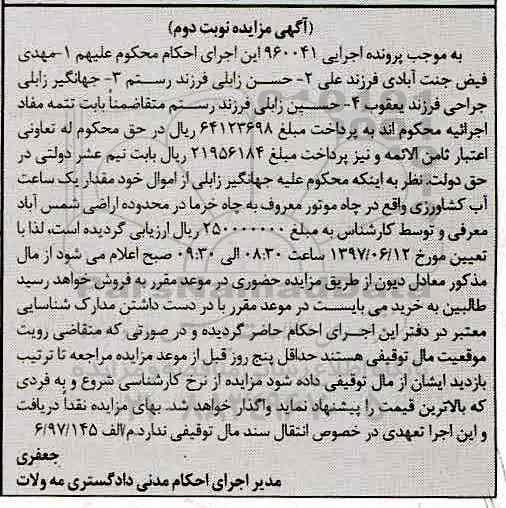 (آگهی مزایده نوبت دوم)
به موجب پرونده اجرایی ۹۶۰۰۴۱ این اجرای احکام محکوم علیهم ۱-مهدی
فیض جنت آبادی فرزند علی ۲- حسن زابلی فرزند رستم ۳- جهانگیر زابلی
جراحی فرزند یعقوب ۴- حسین زابلی فرزند رستم متقاضمناً بابت تتمه مفاد
اجرائیه محکوم اند به پرداخت مبلغ ۶۴۱۲۳۶۹۸ ریال در حق محکوم له تعاونی
اعتبار ثامن الائمه و نیز پرداخت مبلغ ۲۱۹۵۶۱۸۴ ریال بابت نیم عشر دولتی در
حق دولت. نظر به اینکه محکوم علیه جهانگیر زابلی از اموال خود مقدار یک ساعت
آب کشاورزی واقع در چاه موتور معروف به چاه خرما در محدوده اراضی شمس آباد
معرفی و توسط کارشناس به مبلغ ۲۵۰۰۰۰۰۰۰ ریال ارزیابی گردیده است، لذا با
تعیین مورخ ۱۳۹۷/۰۶/۱۲ ساعت ۰۸:۳۰ الی ۰۹:۳۰ صبح اعلام می شود از مال
مذکور معادل دیون از طریق مزایده حضوری در موعد مقرر به فروش خواهد رسید
طالبین به خرید می بایست در موعد مقرر با در دست داشتن مدارک شناسایی
معتبر در دفتر این اجرای احکام حاضر گردیده و در صورتی که متقاضی رویت
موقعیت مال توقیفی هستند حداقل پنج روز قبل از موعد مزایده مراجعه تا ترتیب
بازدید ایشان از مال توقیفی داده شود مزایده از نرخ کارشناسی شروع و به فردی
که بالاترین قیمت را پیشنهاد نماید واگذار خواهد شد. بهای مزایده نقداً دریافت
و این اجرا تعهدی در خصوص انتقال سند مال توقیفی ندارد.م/الف ۶/۹۷/۱۴۵
جعفری
مدیر اجرای احکام مدنی دادگستری مه ولات